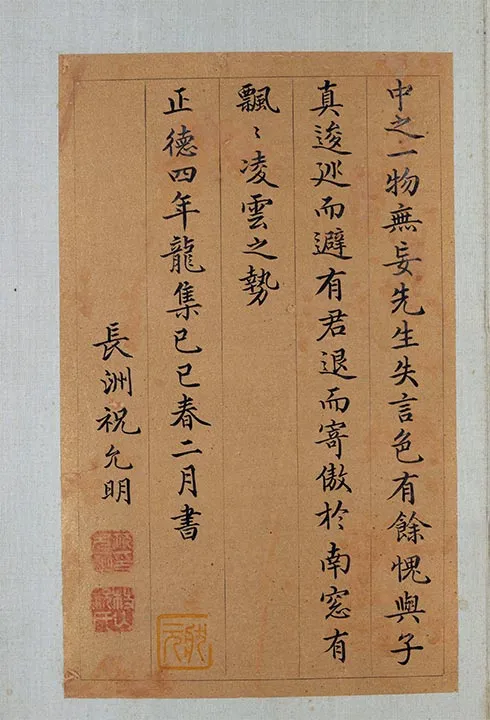 中之一物無妄先生失言色有餘愧與子
真逡巡而避有君退而寄傲於南窓有
飄〻凌雲之勢
正德四年龍集己巳春二月書
長洲祝允明